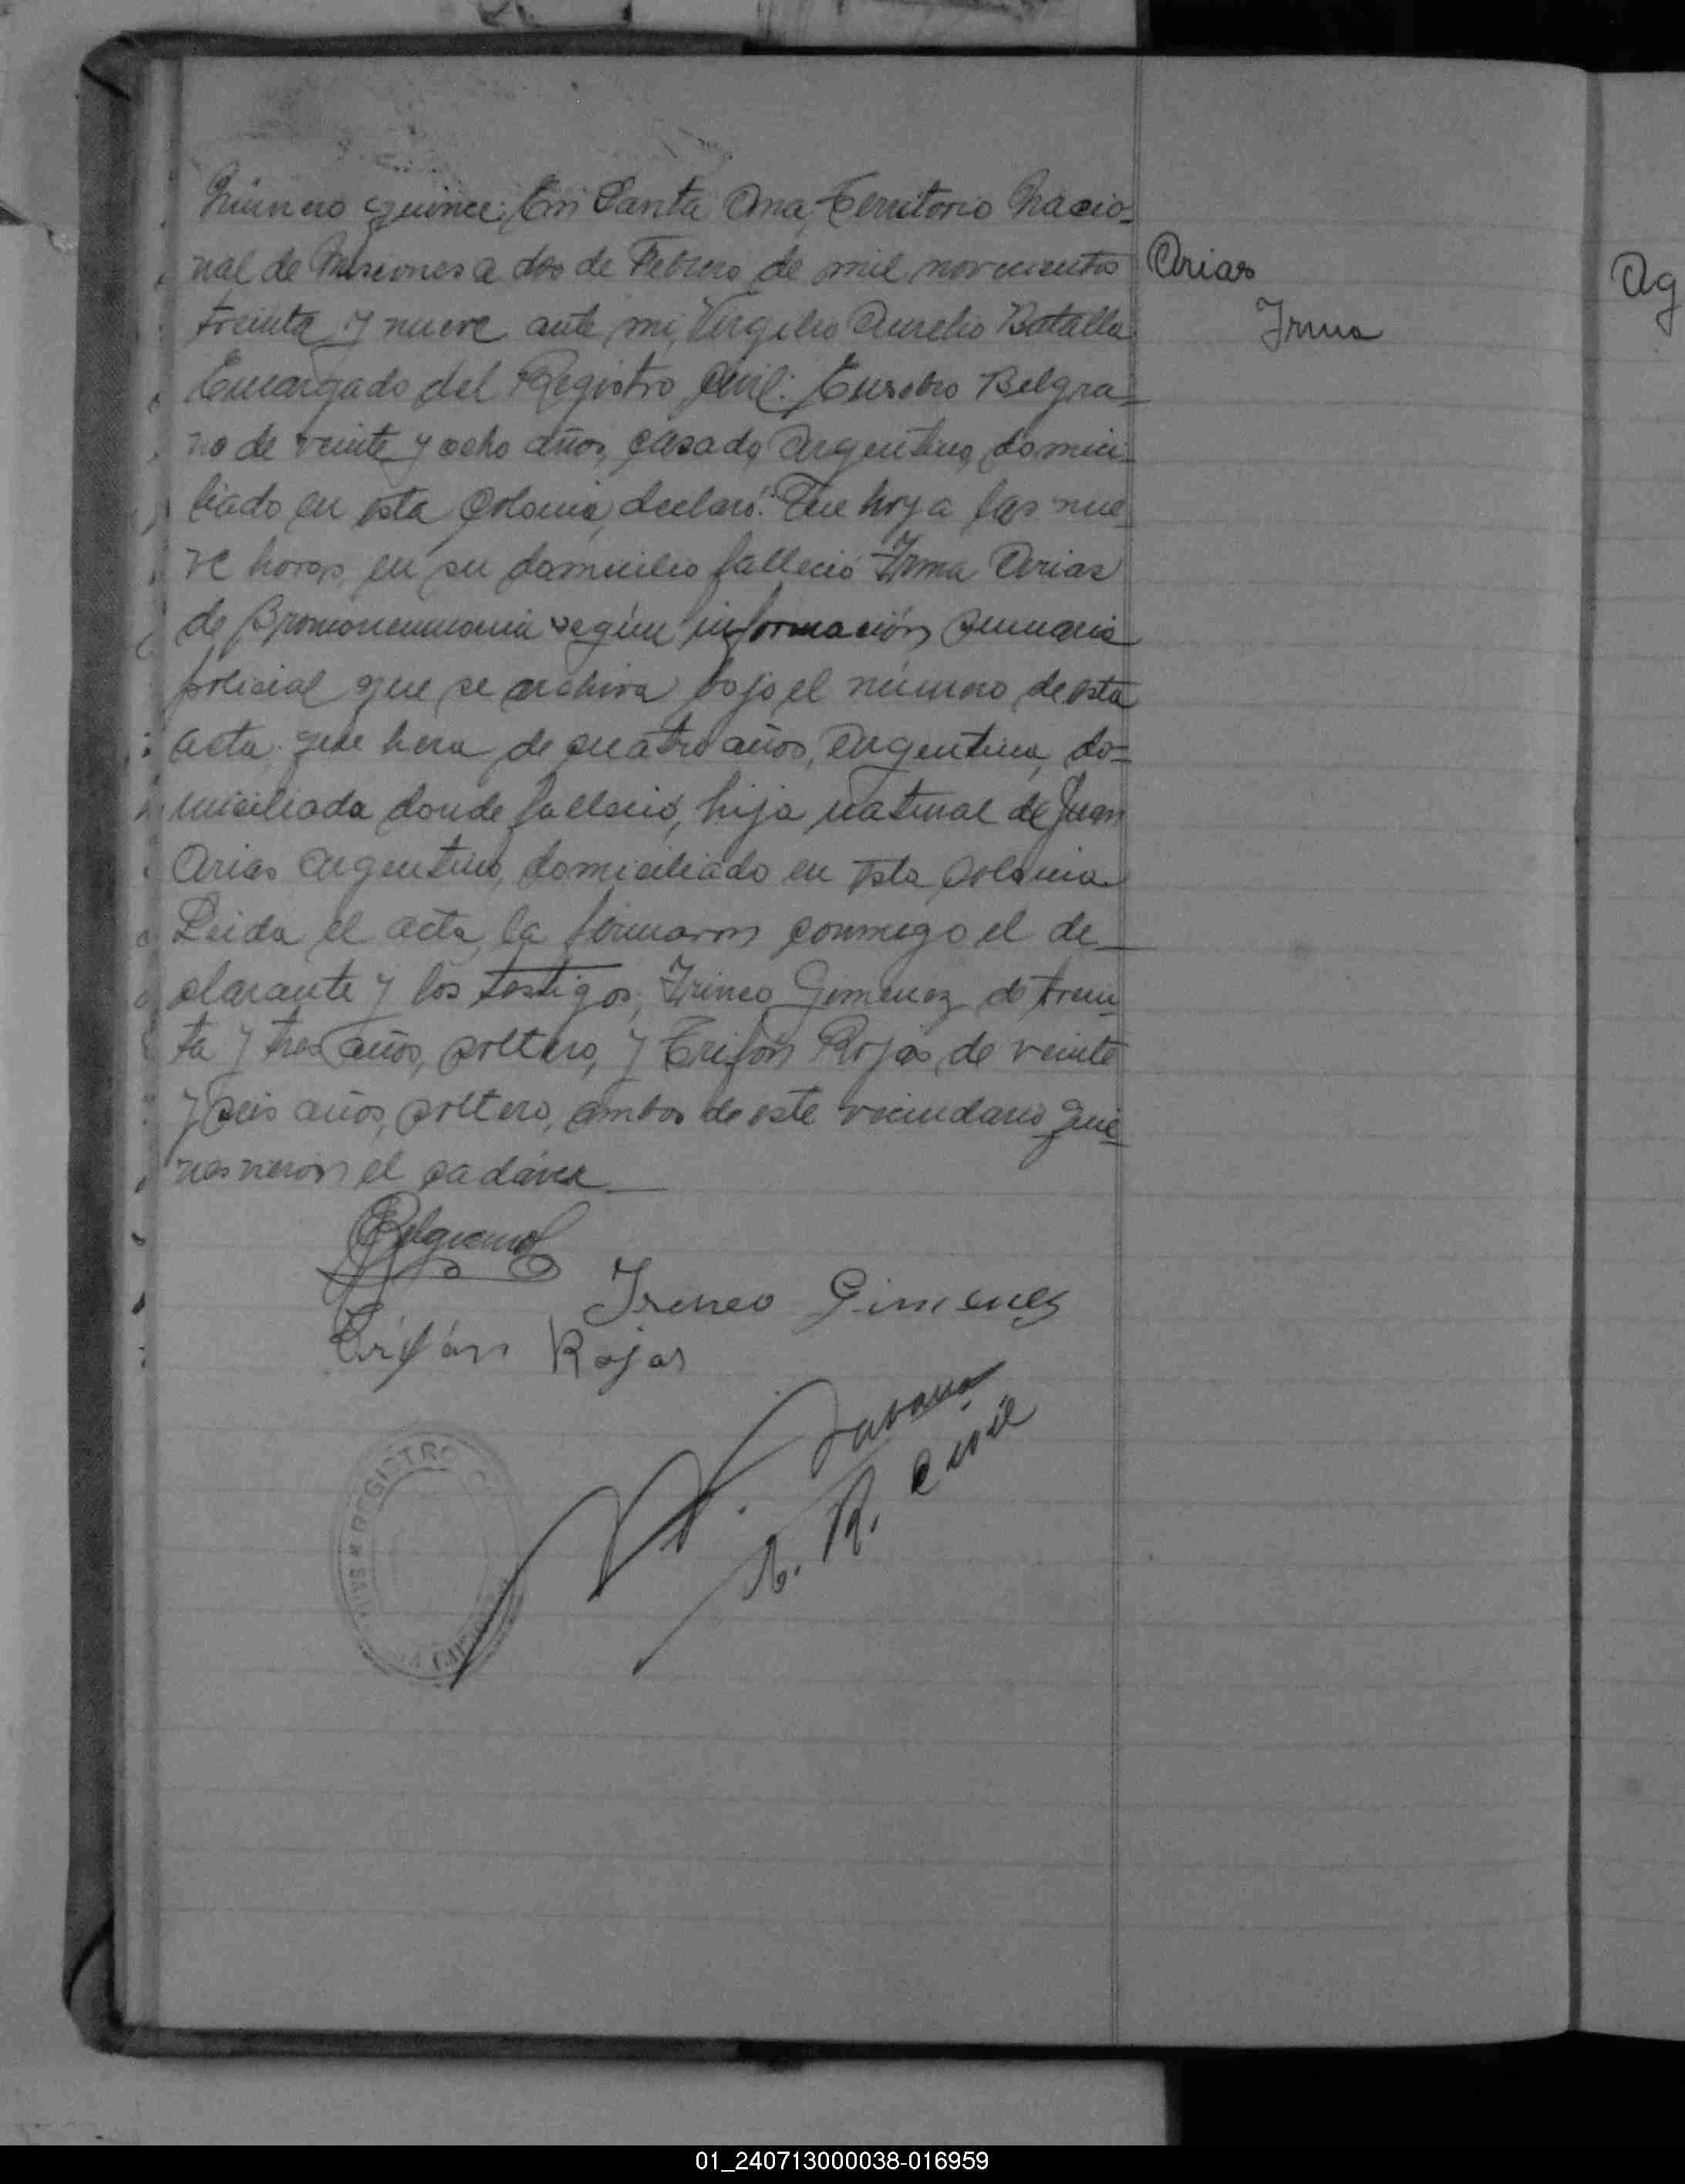 Número quince: En Santa Ana, Territorio Nacio-
nal de Misiones a dos de Febrero de mil novecientos
treinta y nueve ante mi, Virgilio Aurelio Batalla
Encargado del Registro Civil: Eusebio Belgra-
no de veinte y ocho años, casado, Argentino, domici-
liado en esta Colonia, declaró: Que hoy a las nue-
ve horas, en su domicilio falleció Irma Arias
de Bronconeumonia según información sumaria
policial que se archiva bajo el número de esta
acta, que hera de cuatro años, Argentina, do-
miciliada donde falleció, hija natural de Juan
Arias Argentino, domiciliado en esta Colonia
Leida el acta, la firmaron conmigo el de-
clarante y los testigos, Irineo Gimenez de trein-
ta y tres años, soltero, y Trifón Rojas, de veinte
y seis años, soltero, ambos de este vecindario quie-
nes vieron el cadáver
Arias
Irma
Ag
Belgrano
Ireneo Gimenez
Trifón Rojas
R. Civil
REGISTRO
01_240713000038-016959